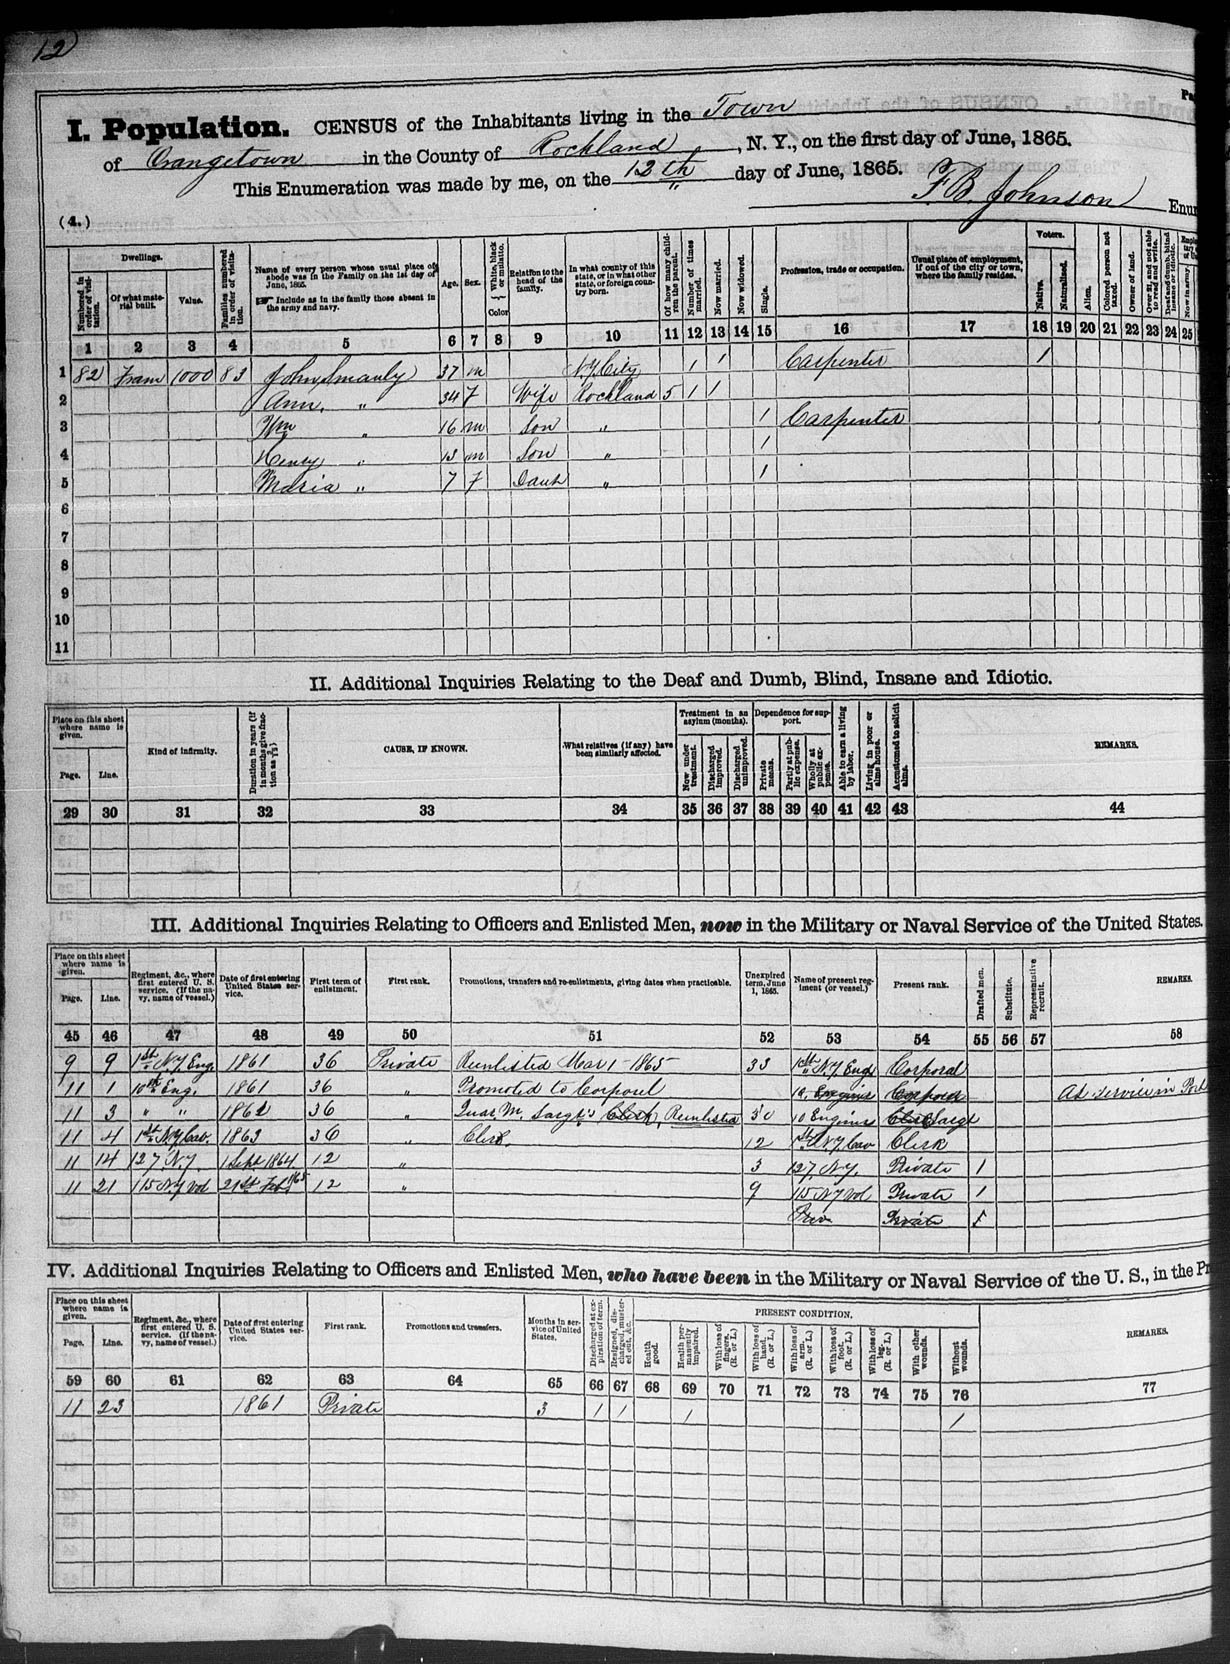 12
Pa
I. Population. CENSUS of the Inhabitants living in the Town
of Orangetown in the County of Rockland, N. Y., on the first day of June, 1865.
This Enumeration was made by me, on the 12th day of June, 1865.
F. B. Johnson Enum
(4.)
Numbered in order of visitation.
Dwellings.
Of what material built.
Value.
Families numbered in order of visitation.
Name of every person whose usual place of abode was in the Family on the 1st day of June, 1865.
☞ Include as in the family those absent in the army and navy.
Age.
Sex.
White, black or mulatto.
Color
Relation to the head of the family.
In what county of this state, or in what other state, or foreign country born.
Of how many children the parent.
Number of times married.
Now married.
Now widowed.
Single.
Profession, trade or occupation.
Usual place of employment, if out of the city or town, where the family resides.
Voters.
Native.
Naturalized.
Alien.
Colored person not taxed.
Owner of land.
Over 21, and not able to read and write.
Deaf and dumb, blind insane or idiotic.
Now in army.
1 2 3 4 5 6 7 8 9 10 11 12 13 14 15 16 17 18 19 20 21 22 23 24 25
1 82 Fram 1000 83 John 37 m NY City 1 1 Carpenter 1
2 Ann " 34 F Wife Rockland 5 1 1
3 Wm " 16 m Son " 1 Carpenter
4 Henry " 13 m Son " 1
5 Maria " 7 F Daut " 1
6
7
8
9
10
11
II. Additional Inquiries Relating to the Deaf and Dumb, Blind, Insane and Idiotic.
Place on this sheet where name is given.
Page.
Line.
Kind of infirmity.
Duration in years (if in months give fraction as 7/12)
CAUSE, IF KNOWN.
What relatives (if any) have been similarly affected.
Treatment in an asylum (months).
Now under treatment.
Discharged improved.
Discharged unimproved.
Dependence for support.
Private means.
Partly at public expense.
Wholly at public expense.
Able to earn a living by labor.
Living in poor or alms house.
Accustomed to solicit alms.
REMARKS.
29 30 31 32 33 34 35 36 37 38 39 40 41 42 43 44
III. Additional Inquiries Relating to Officers and Enlisted Men, now in the Military or Naval Service of the United States.
Place on this sheet where name is given.
Page.
Line.
Regiment, &c., where first entered U. S. service. (If the navy, name of vessel.)
Date of first entering United States service.
First term of enlistment.
First rank.
Promotions, transfers and re-enlistments, giving dates when practicable.
Unexpired term, June 1, 1865.
Name of present regiment (or vessel.)
Present rank.
Drafted men.
Substitute.
Representative recruit.
REMARKS.
45 46 47 48 49 50 51 52 53 54 55 56 57 58
9 9 1st N.Y Eng. 1861 36 Private Reenlisted Mar 1 - 1865 33 1st N.Y Engs Corporal
11 1 10th Eng. 1861 36 " Promoted to Corporal 10 Engins Corporal
11 3 " " 1862 36 " Quar. M. Sargt's Clerk, Reenlisted 30 10 Engins Clerk Sargt
11 4 1st N.Y Cav. 1863 36 " Clerk. 12 1st N.Y Cav Clerk
11 14 127 N.Y. 1 Sept 1864 12 " 3 127, N.Y. Private 1
11 21 115 N.Y Vol 21st Feb 1865 12 " 9 115 N.Y Vol Private 1
Private 1
IV. Additional Inquiries Relating to Officers and Enlisted Men, who have been in the Military or Naval Service of the U. S., in the Pr
Place on this sheet where name is given.
Page.
Line.
Regiment, &c., where first entered U. S. service. (If the navy, name of vessel.)
Date of first entering United States service.
First rank.
Promotions and transfers.
Months in service of United States.
Discharged at expiration of term.
Resigned, discharged, mustered out, &c.
PRESENT CONDITION.
Health good.
Health permanently impaired.
With loss of fingers. (R. or L.)
With loss of hand. (R. or L.)
With loss of arm. (R. or L.)
With loss of foot. (R. or L.)
With loss of leg. (R. or L.)
With other wounds.
Without wounds.
REMARKS.
59 60 61 62 63 64 65 66 67 68 69 70 71 72 73 74 75 76 77
11 23 1861 Private 3 1 1 1 1